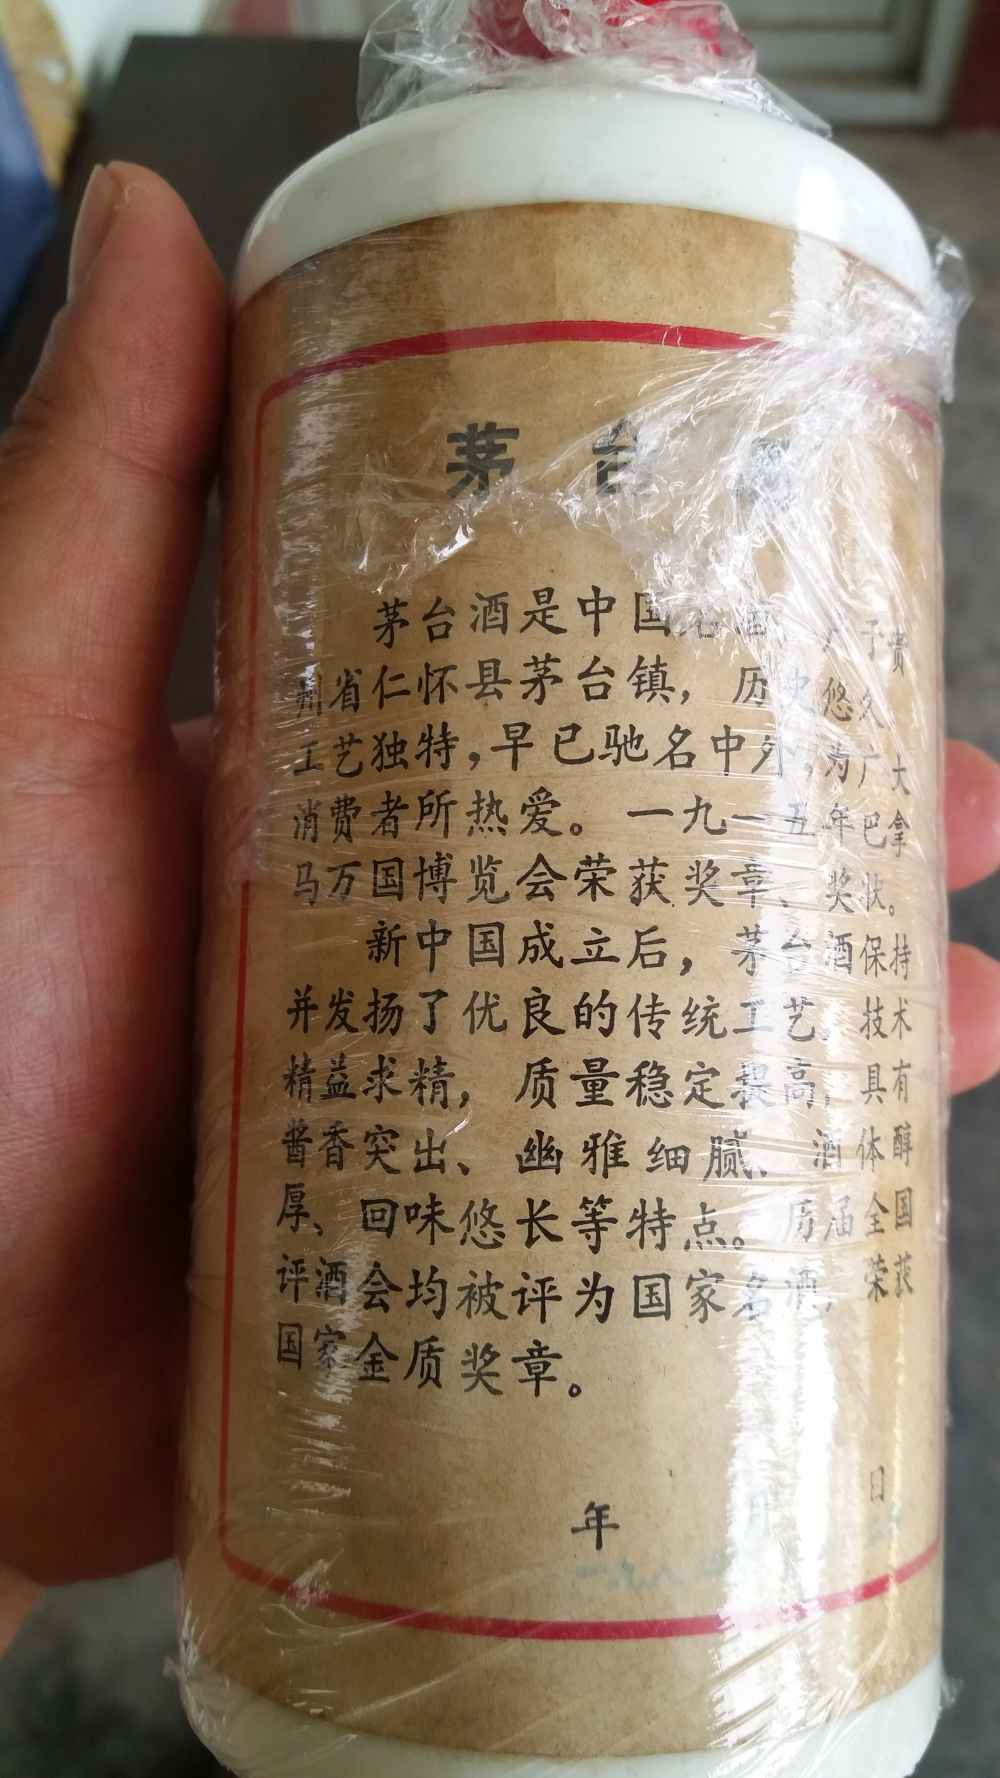 茅台
茅台酒是中国名酒,产于贵
州省仁怀县茅台镇，历史悠久
工艺独特，早已驰名中外，为广大
消费者所热爱。一九一五年巴拿
马万国博览会荣获奖章、奖状。
新中国成立后，茅台酒保持
并发扬了优良的传统工艺，技术
精益求精，质量稳定提高，具有
酱香突出、幽雅细腻、酒体醇
厚、回味悠长等特点。历届全国
评酒会均被评为国家名酒，荣获
国家金质奖章。
年 月 日